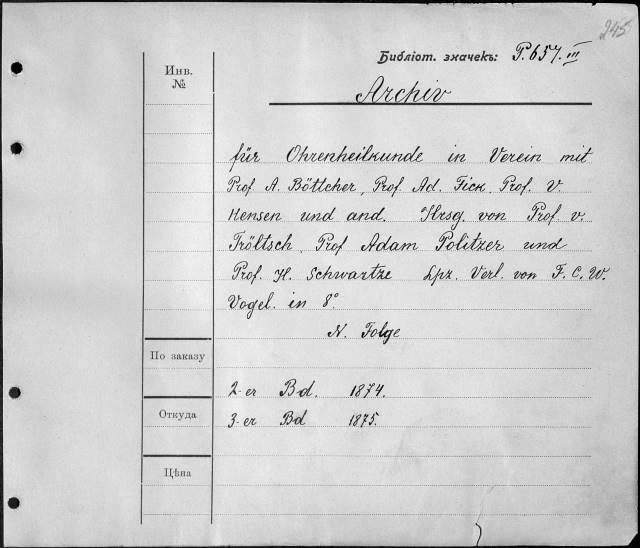 245
Библіот. значекъ: P.657.III
Инв.
№
Archiv
für Ohrenheilkunde in Verein mit
Prof A. Böttcher, Prof. Ad. Fick, Prof. V
Hensen und and. Hrsg. von Prof. v.
Tröltsch, Prof Adam Politzer und
Prof. H. Schwartze Lpz. Verl. von F. C. W.
Vogel. in 8°
N. Folge
По заказу
2-er Bd. 1874.
Откуда
3-er Bd 1875.
Цѣна